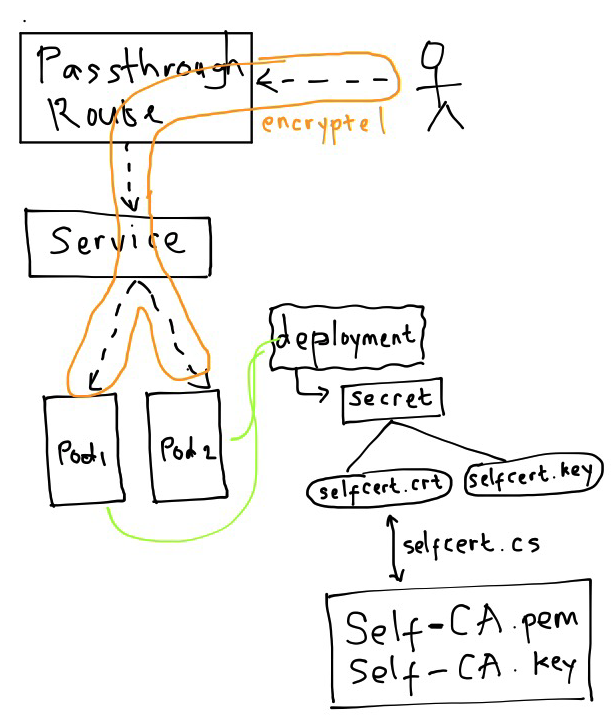 Passthrough
Route
encrypted
Service
deployment
secret
Pod1
Pod2
selfcert.crt
selfcert.key
selfcert.cs
Self-CA.pem
Self-CA.key